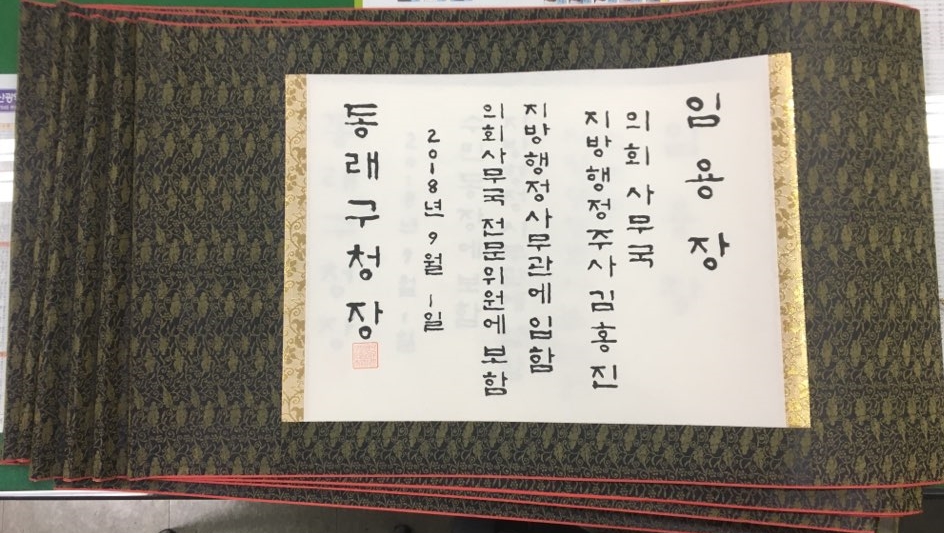 임용장
의회 사무국
지방행정주사 김홍진
지방행정사무관에 임함
의회사무국 전문위원에 보함
2018년 9월 1일
동래구청장